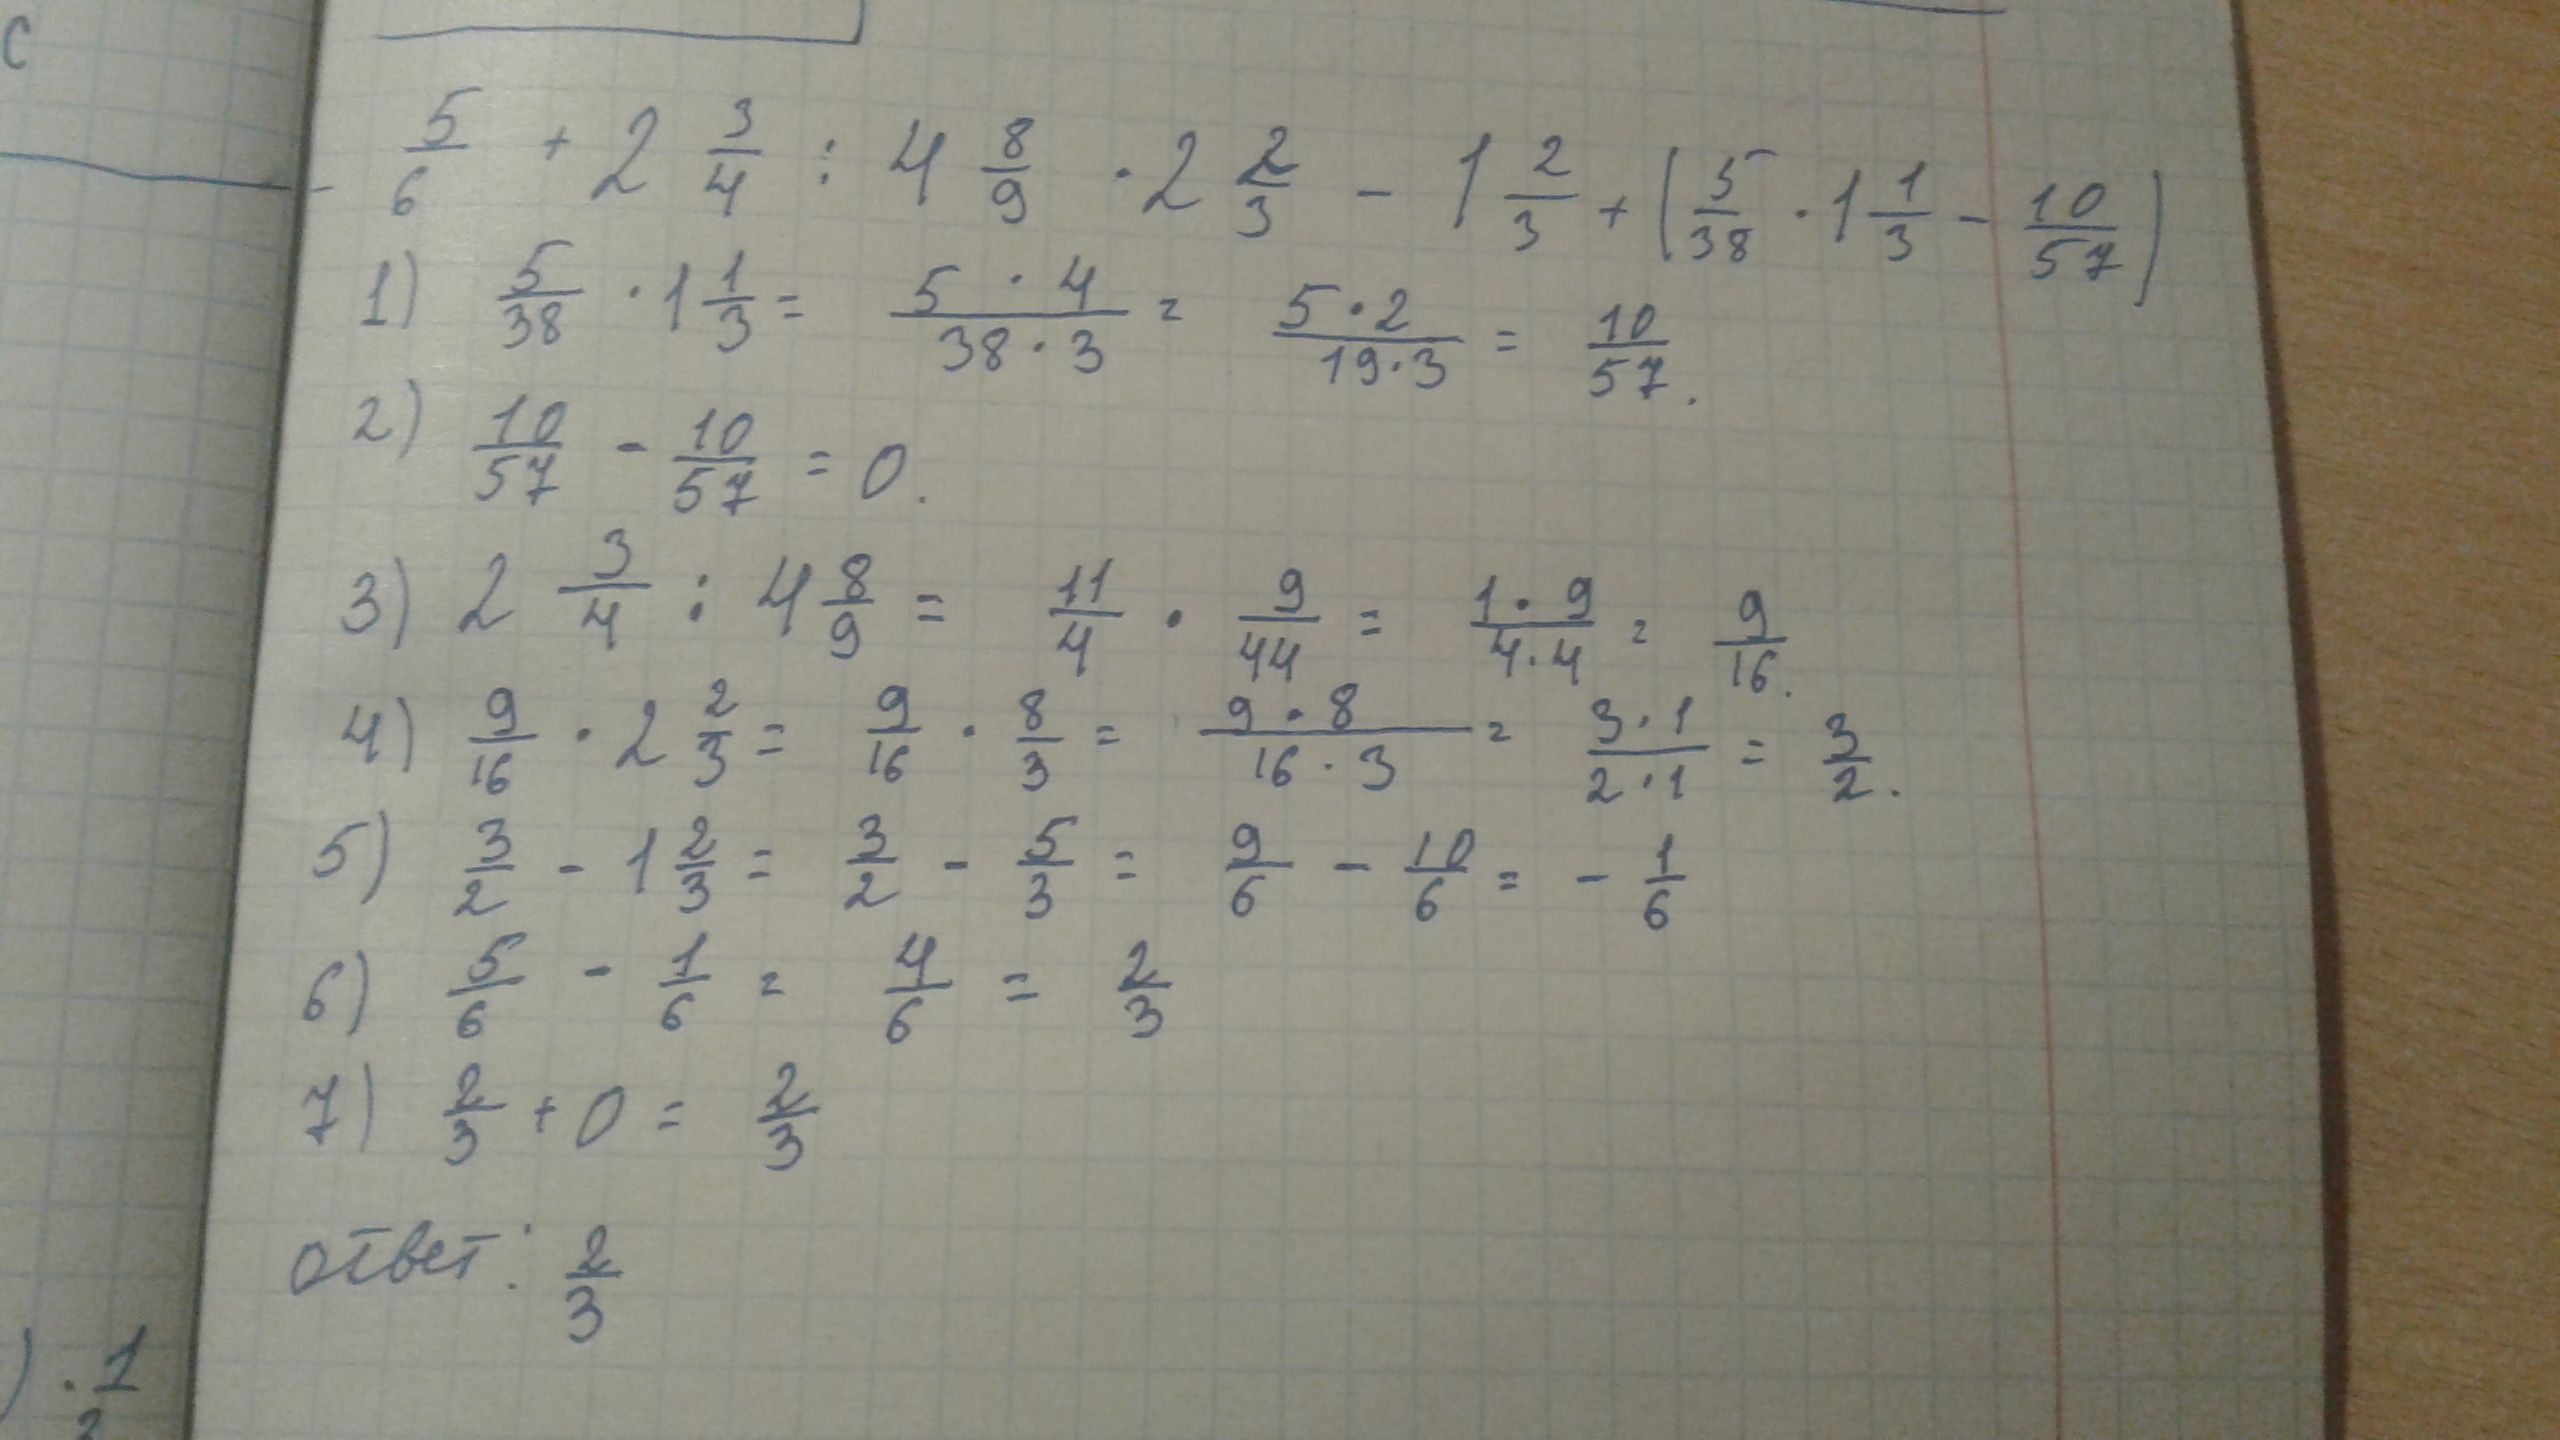 c
5/6 + 2 3/4 : 4 8/9 · 2 2/3 - 1 2/3 + (5/38 · 1 1/3 - 10/57)
1) 5/38 · 1 1/3 = 5 · 4/38 · 3 = 5 · 2/19 · 3 = 10/57.
2) 10/57 - 10/57 = 0.
3) 2 3/4 : 4 8/9 = 11/4 · 9/44 = 1 · 9/4 · 4 = 9/16.
4) 9/16 · 2 2/3 = 9/16 · 8/3 = 9 · 8/16 · 3 = 3 · 1/2 · 1 = 3/2.
5) 3/2 - 1 2/3 = 3/2 - 5/3 = 9/6 - 10/6 = - 1/6
6) 5/6 - 1/6 = 4/6 = 2/3
7) 2/3 + 0 = 2/3
ответ: 2/3
) · 1